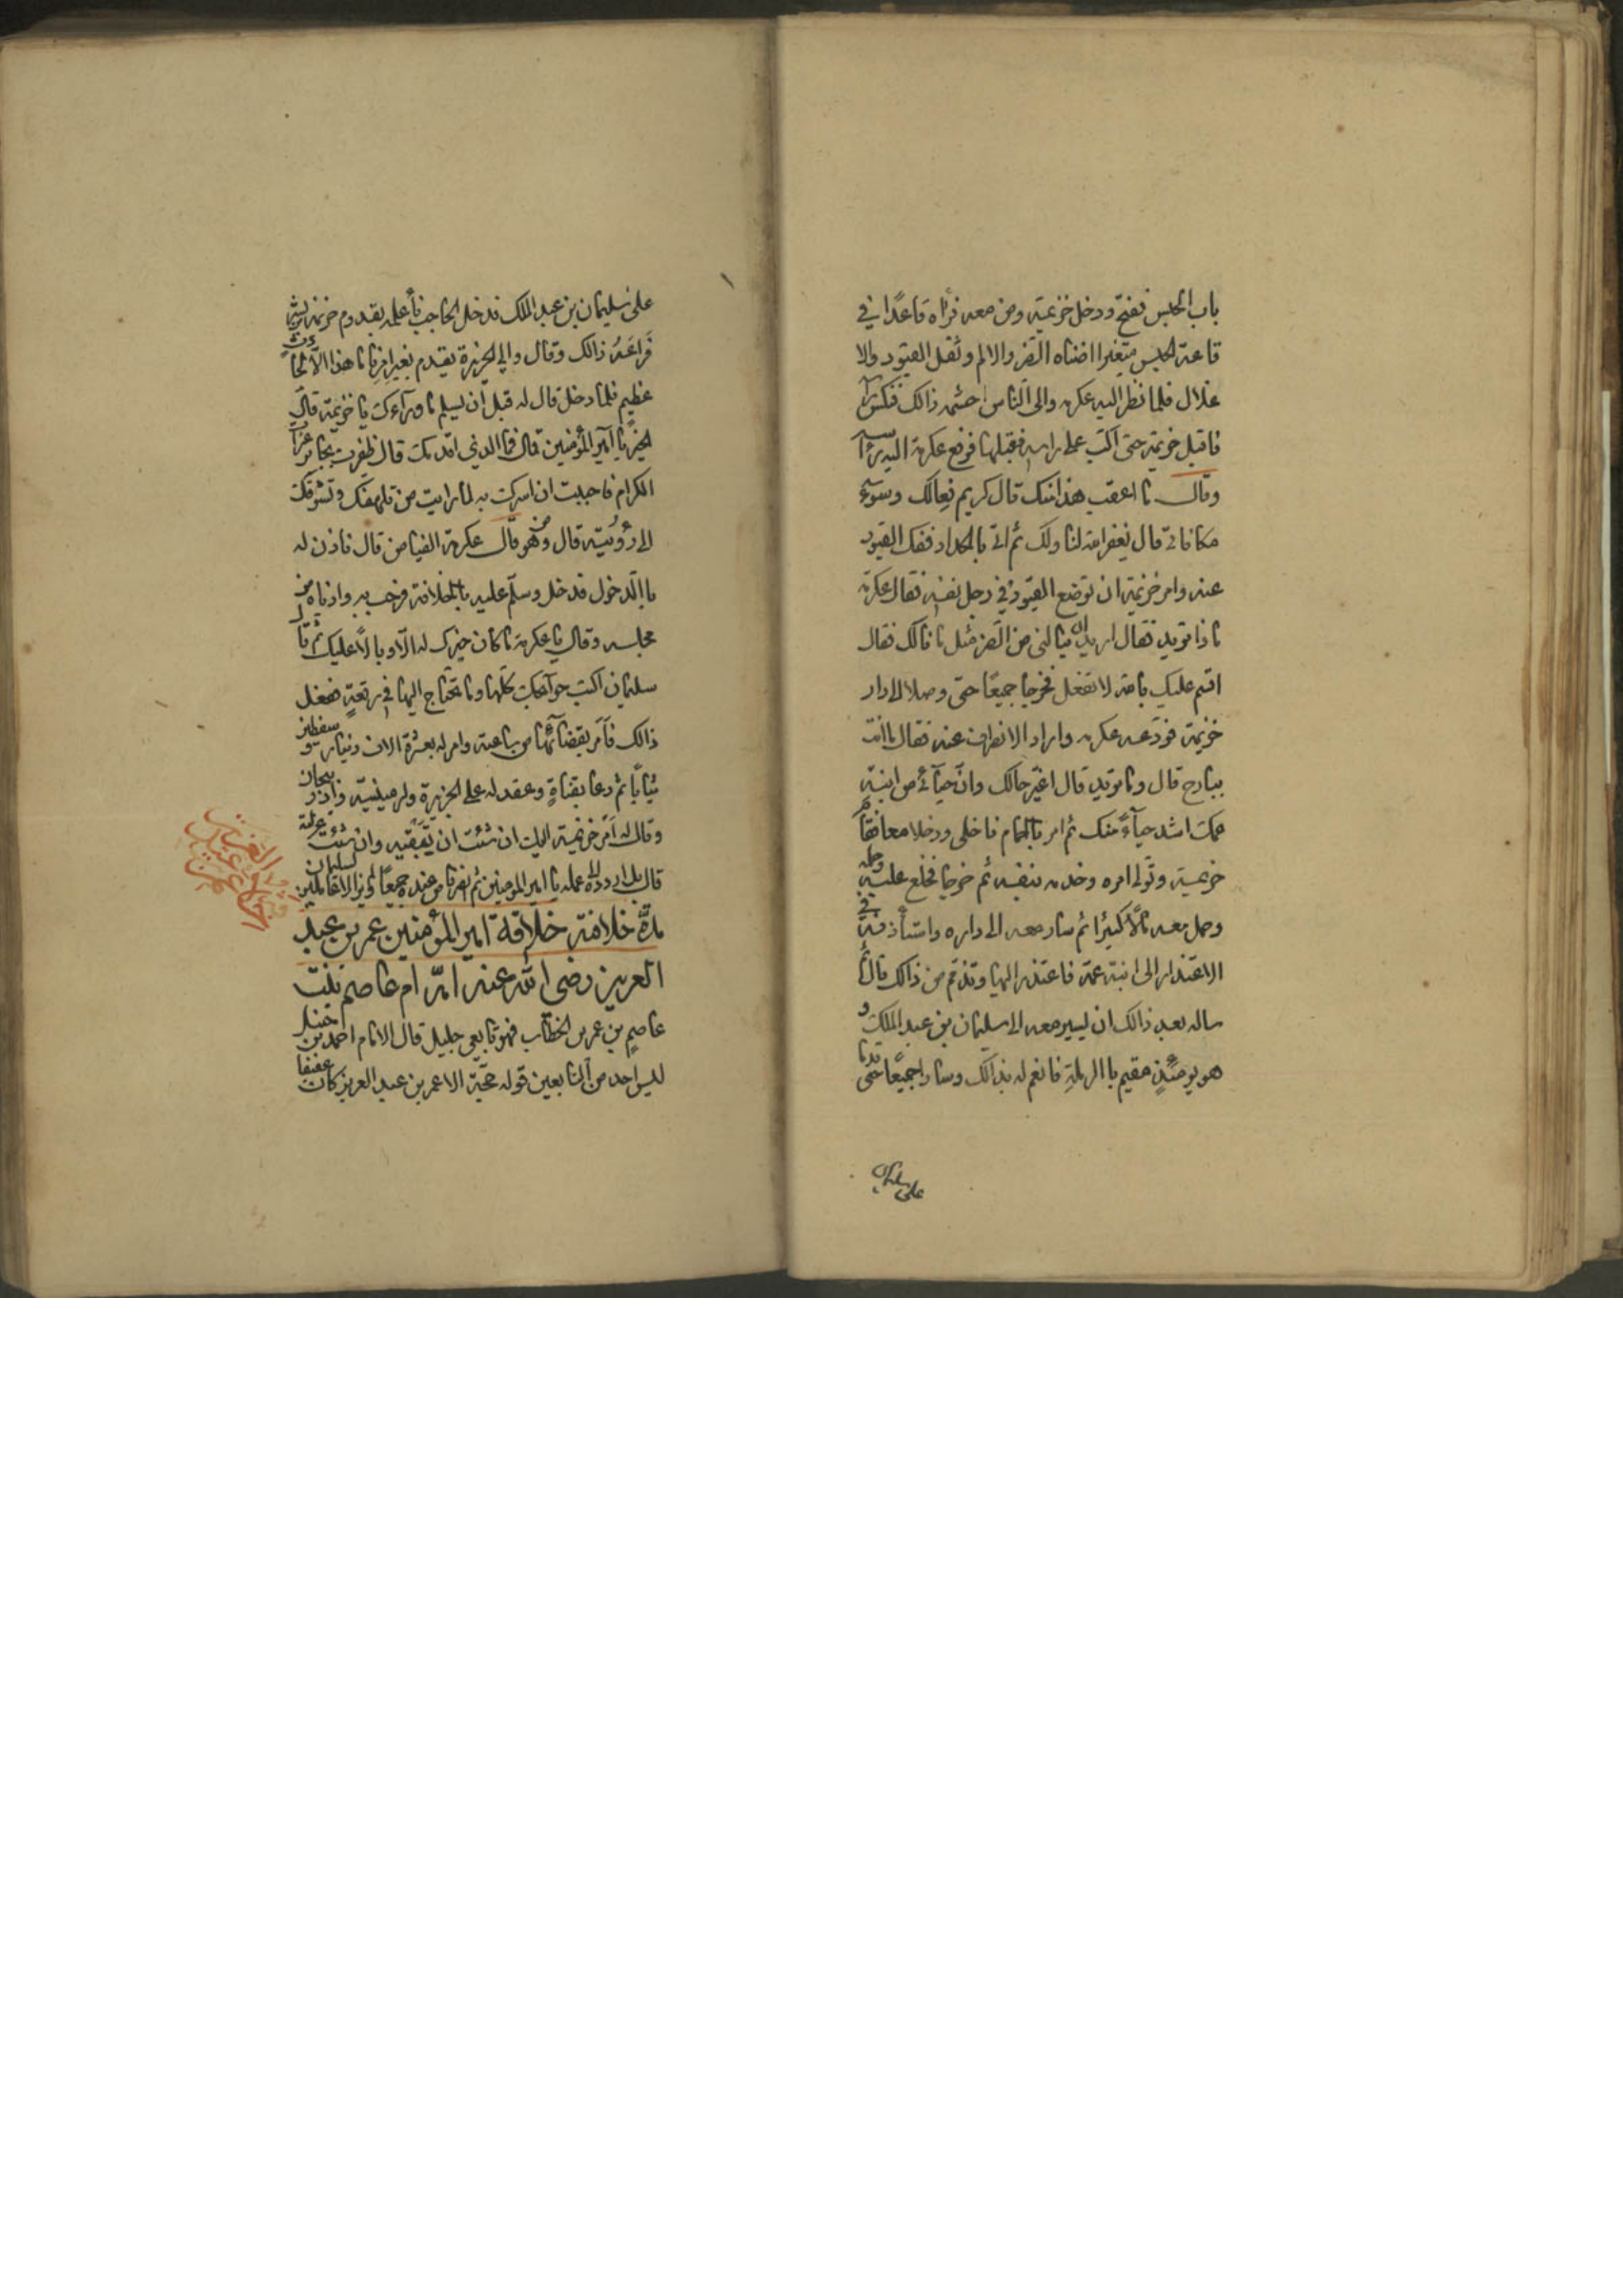 باب الحبس ففتح ودخل خزيمة ومن معه فراه قاعدًا في
قاعة الحبس متغيرا اضناه الضر والالم وثقل القيود والا
غلال فلما نظر اليه عكرمه والى الناس احشمه ذالك فنكس راسه
فاقبل خزيمة حتى اكب على راسه فقبلها فرفع عكرمة اليه راسه
وقال ما اعقب هذا منك قال كريم فعالك وسوء
مكافاتي قال يغفر الله لنا ولك ثم اتى بالحداد ففك القيود
عنه وامر خزيمة ان توضع القيود في رجل نفسه فقال عكرمة
ماذا تريد فقال اريد ان ينالني من الضر مثل ما نالك فقال
اقسم عليك بالله لا تفعل فخرجا جميعًا حتى وصلا الى دار
خزيمة فودعه عكرمه واراد الانصراف عنه فقال ما انت
ببارح قال وما تريد قال اغير حالك وان حيآئى من ابنة
عمك اشد حيآءً منك ثم امر بالحمام فاخلى ودخلا معا فقام
خزيمة وتولى امره وخدمه بنفسه ثم خرجا فخلع عليه وحمله
وحمل معه مالًا كثيرًا ثم سار معه الى داره واستأذنه في
الاعتذار الى ابنة عمه فاعتذر اليها وتذمم من ذالك قال ثم
ساله بعد ذالك ان يسير معه الى سليمان بن عبد الملك و
هو يومئذٍ مقيم باالرملة فانعم له بذالك وسارا جميعًا حتى قدما
على سليمان
على سليمان بن عبد الملك فدخل الحاجب فأعلمه بقدوم خزيمة بن بشر
فراعه ذالك وقال والي الجزيرة يقدم بغير امرنا ما هذا الا لحادث
عظيم فلما دخل قال له قبل ان يسلم ما ورآءك يا خزيمة قال
الخير يا امير المؤمنين قال فما الذي اقدمك قال ظفرت بجابر عثرات
الكرام فاحببت ان اسرك به لما رايت من تلهفك وتشوقك
الى رؤيته قال ومن هو قال عكرمة الفياض قال فاذن له
باالدخول فدخل وسلم عليه بالخلافة فرحب به وادناه من
مجلسه وقال يا عكرمة ما كان خيرك له الا وبالًا عليك ثم قال
سليمان اكتب حوآئجك كلها وما تحتاج اليها في رقعةٍ ففعل
ذالك فأمر بقضآئها من ساعته وامر له بعشرة الاف دينار وسفطين
ثيابًا ثم دعا بقناةٍ وعقد له على الجزيرة وارمينية واذربيجان
وقال له امر خزيمة اليك ان شئت ان تبقيه وان شئت عزلته
قال بل اردده الى عمله يا امير المومنين ثم انصرفا من عنده جميعًا ولم يزالا عاملين لسليمان
مدة خلافته خلافة امير المؤمنين عمر بن عبد
العزيز رضى الله عنه امه ام عاصم بنت
عاصم بن عمر بن الخطاب فهو تابعى جليل قال الامام احمد بن حنبل
ليس احد من التابعين قوله حجة الا عمر بن عبد العزيز كان عفيفا